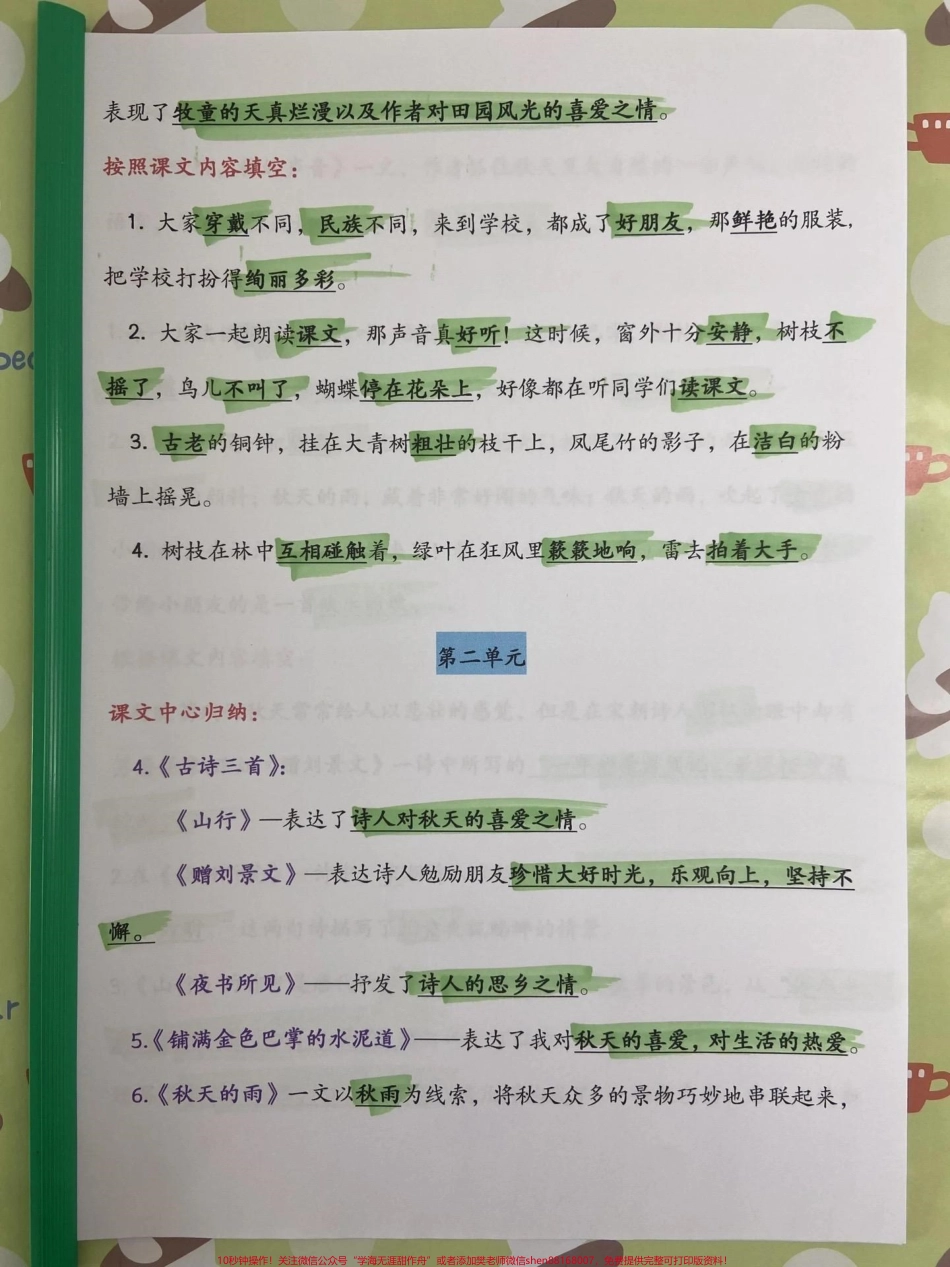 表现了牧童的天真烂漫以及作者对田园风光的喜爱之情。
按照课文内容填空：
1. 大家穿戴不同，民族不同，来到学校，都成了好朋友，那鲜艳的服装，
把学校打扮得绚丽多彩。
2. 大家一起朗读课文，那声音真好听！这时候，窗外十分安静，树枝不
摇了，鸟儿不叫了，蝴蝶停在花朵上，好像都在听同学们读课文。
3. 古老的铜钟，挂在大青树粗壮的枝干上，凤尾竹的影子，在洁白的粉
墙上摇晃。
4. 树枝在林中互相碰触着，绿叶在狂风里簌簌地响，雷云拍着大手。
第二单元
课文中心归纳：
4.《古诗三首》：
《山行》—表达了诗人对秋天的喜爱之情。
《赠刘景文》—表达诗人勉励朋友珍惜大好时光，乐观向上，坚持不
懈。
《夜书所见》——抒发了诗人的思乡之情。
5.《铺满金色巴掌的水泥道》——表达了我对秋天的喜爱，对生活的热爱。
6.《秋天的雨》一文以秋雨为线索，将秋天众多的景物巧妙地串联起来，
10秒钟操作！关注微信公众号“学海无涯甜作舟”或者添加樊老师微信shen88168007，免费提供完整可打印版资料！